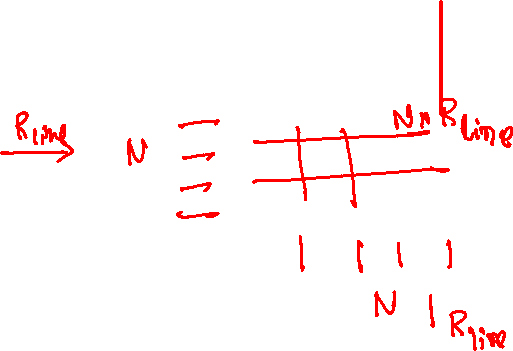 R line
N
N x R line
N
R line